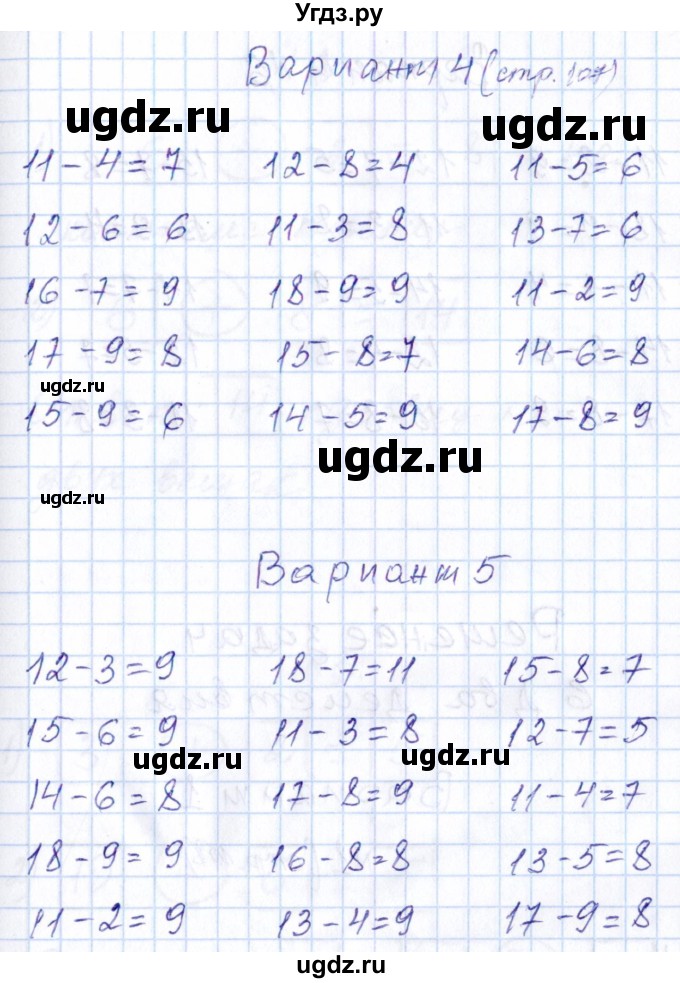 Угдз.ру
Вариант 4 (стр. 107)
ugdz.ru ugdz.ru
11 - 4 = 7 12 - 8 = 4 11 - 5 = 6
12 - 6 = 6 11 - 3 = 8 13 - 7 = 6
16 - 7 = 9 18 - 9 = 9 11 - 2 = 9
17 - 9 = 8 15 - 8 = 7 14 - 6 = 8
ugdz.ru
15 - 9 = 6 14 - 5 = 9 17 - 8 = 9
ugdz.ru
ugdz.ru
Вариант 5
12 - 3 = 9 18 - 7 = 11 15 - 8 = 7
15 - 6 = 9 11 - 3 = 8 12 - 7 = 5
ugdz.ru ugdz.ru
14 - 6 = 8 17 - 8 = 9 11 - 4 = 7
18 - 9 = 9 16 - 8 = 8 13 - 5 = 8
11 - 2 = 9 13 - 4 = 9 17 - 9 = 8
ugdz.ru